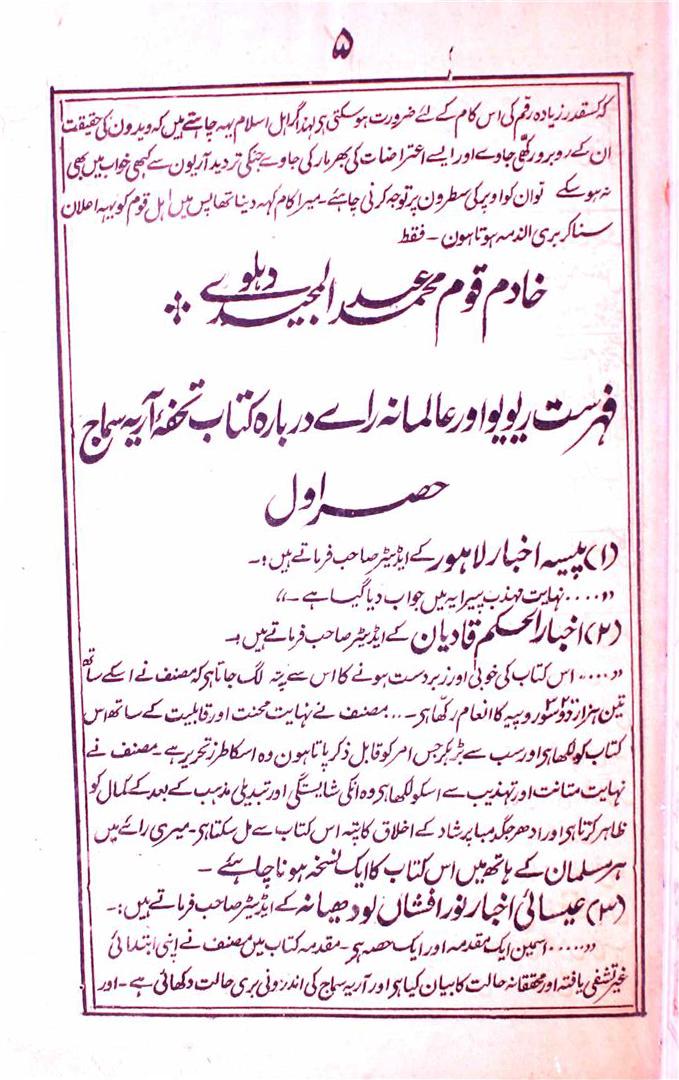 ۵
کہ کسقدر زیادہ رقم کی اس کام کے لئے ضرورت ہوسکتی ہی لہذا گر اہل اسلام یہہ چاہتے ہیں کہ ویدون کی حقیقت
ان کے روبرو رکھی جاوے اور ایسے اعتراضات کی بھرمار کی جاوے جنکی تردید آریون سے کبھی خواب میں بھی
نہ ہوسکے توان کو اوپر کی سطرون پر توجہ کرنی چاہئے۔ میرا کام کہہ دینا تھا پس میں اہل قوم کو یہہ اعلان
سنا کر بری الذمہ ہوتا ہون۔ فقط
خادم قوم محمد عبد المجید دہلوے
فہرست ریویو اور عالمانہ راے دربارہ کتاب تحفۂ آریہ سماج
حصہ اول
(۱) پیسہ اخبار لاہور کے ایڈیٹر صاحب فرماتے ہیں:۔
"..... نہایت مہذب پیرایہ میں جواب دیا گیا ہے۔"
(۲) اخبار الحکم قادیان کے ایڈیٹر صاحب فرماتے ہیں:۔
"..... اس کتاب کی خوبی اور زبردست ہونے کا اس سے پتہ لگ جاتا ہی کہ مصنف نے اسکے ساتھ
تین ہزار دوسو ۳۲۰۰ روپیہ کا انعام رکھا ہی۔... مصنف نے نہایت محنت اور قابلیت کے ساتھ اس
کتاب کو لکھا ہی اور سب سے بڑہکر جس امر کو قابل ذکر پاتا ہون وہ اسکا طرز تحریر ہے۔ مصنف نے
نہایت متانت اور تہذیب سے اسکو لکھا ہی وہ انکی شایستگی اور تبدیلی مذہب کے بعد کے کمال کو
ظاہر کرتا ہی اور ادھر جگدمبا پرشاد کے اخلاق کا پتہ اس کتاب سے مل سکتا ہی۔ میری رائے میں
ہر مسلمان کے ہاتھ میں اس کتاب کا ایک نسخہ ہونا چاہئے۔
(۳) عیسائی اخبار نور افشاں لودھیانہ کے ایڈیٹر صاحب فرماتے ہیں:۔
"..... اسمین ایک مقدمہ اور ایک حصہ ہی۔ مقدمہ کتاب میں مصنف نے اپنی ابتدائی
غیر تشفی یافتہ اور محققانہ حالت کا بیان کیا ہی اور آریہ سماج کی اندرونی بری حالت دکھائی ہے۔ اور